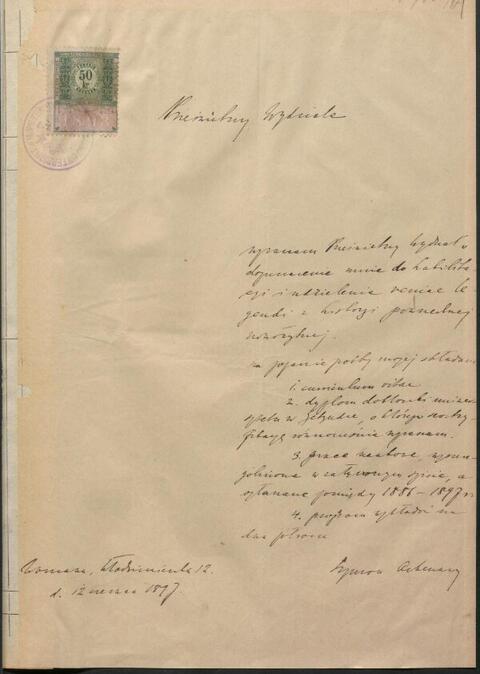 50
Prześwietny Wydziale
upraszam Prześwietny Wydział o
dopuszczenie mnie do habilita
cyi i udzielenie veniae le
gendi z historyi powszechnej
nowożytnej.
na poparcie prośby mojej składam
1. curriculum vitae
2. dyplom doktorski uniwer
sytetu w, o którego nostry
fikacyę równocześnie upraszam.
3. prace naukowe, wyszcze
gólnione w załączonym spisie, a
ogłaszane pomiędzy 1886-1897 r.
4. program wykładów na
dwa półrocza
Szymon Askenazy
12.
d. 12 czerwca 1897.